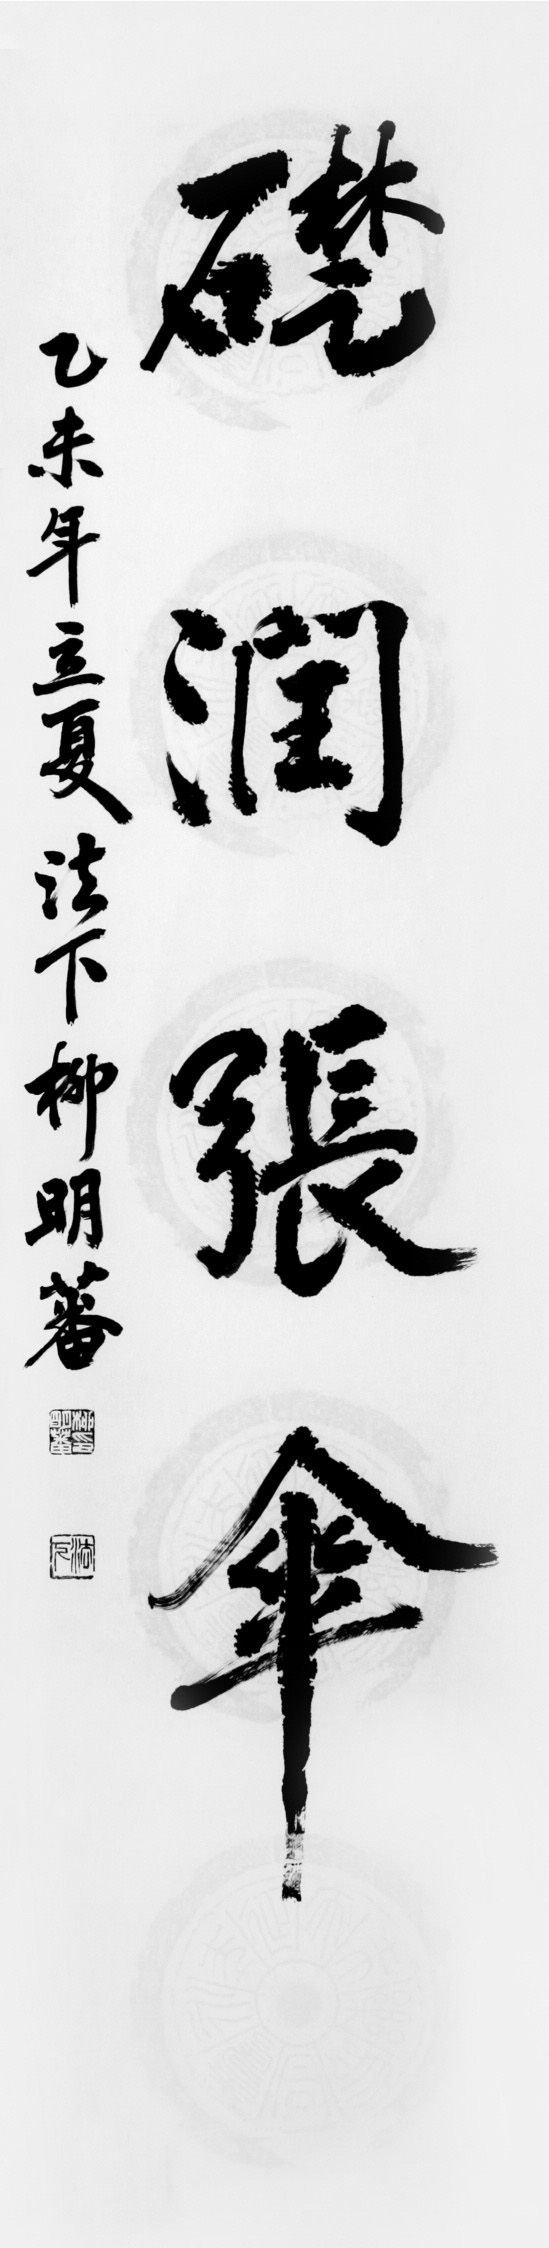 礎潤張傘
乙未年立夏法下柳明蕃